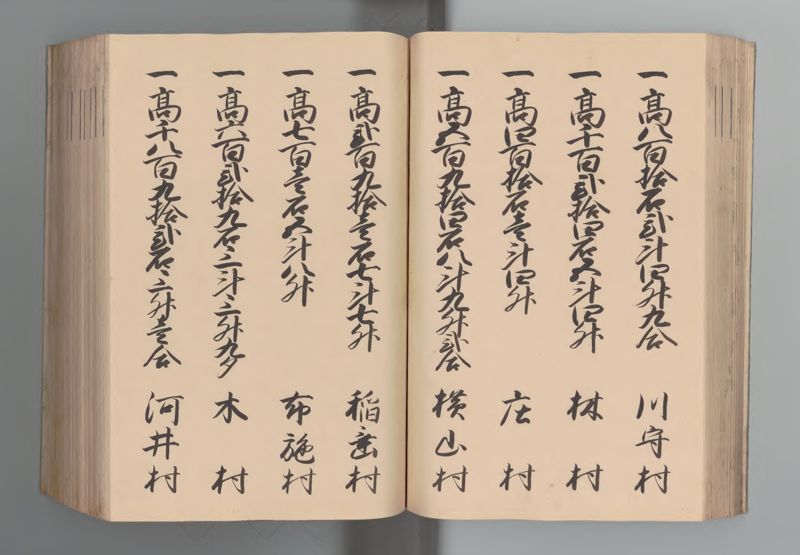 一高八百拾石弐斗四升九合 川守村
一高千百弐拾四石五斗四升 林村
一高四百拾石壱斗四升 庄村
一高五百九拾四石八斗九升弐合 横山村
一高弐百九拾壱石七斗七升 稲垂村
一高七百壱石五斗八升 布施村
一高六百弐拾九石二斗三升九夕 木村
一高千八百九拾弐石三升壱合 河井村